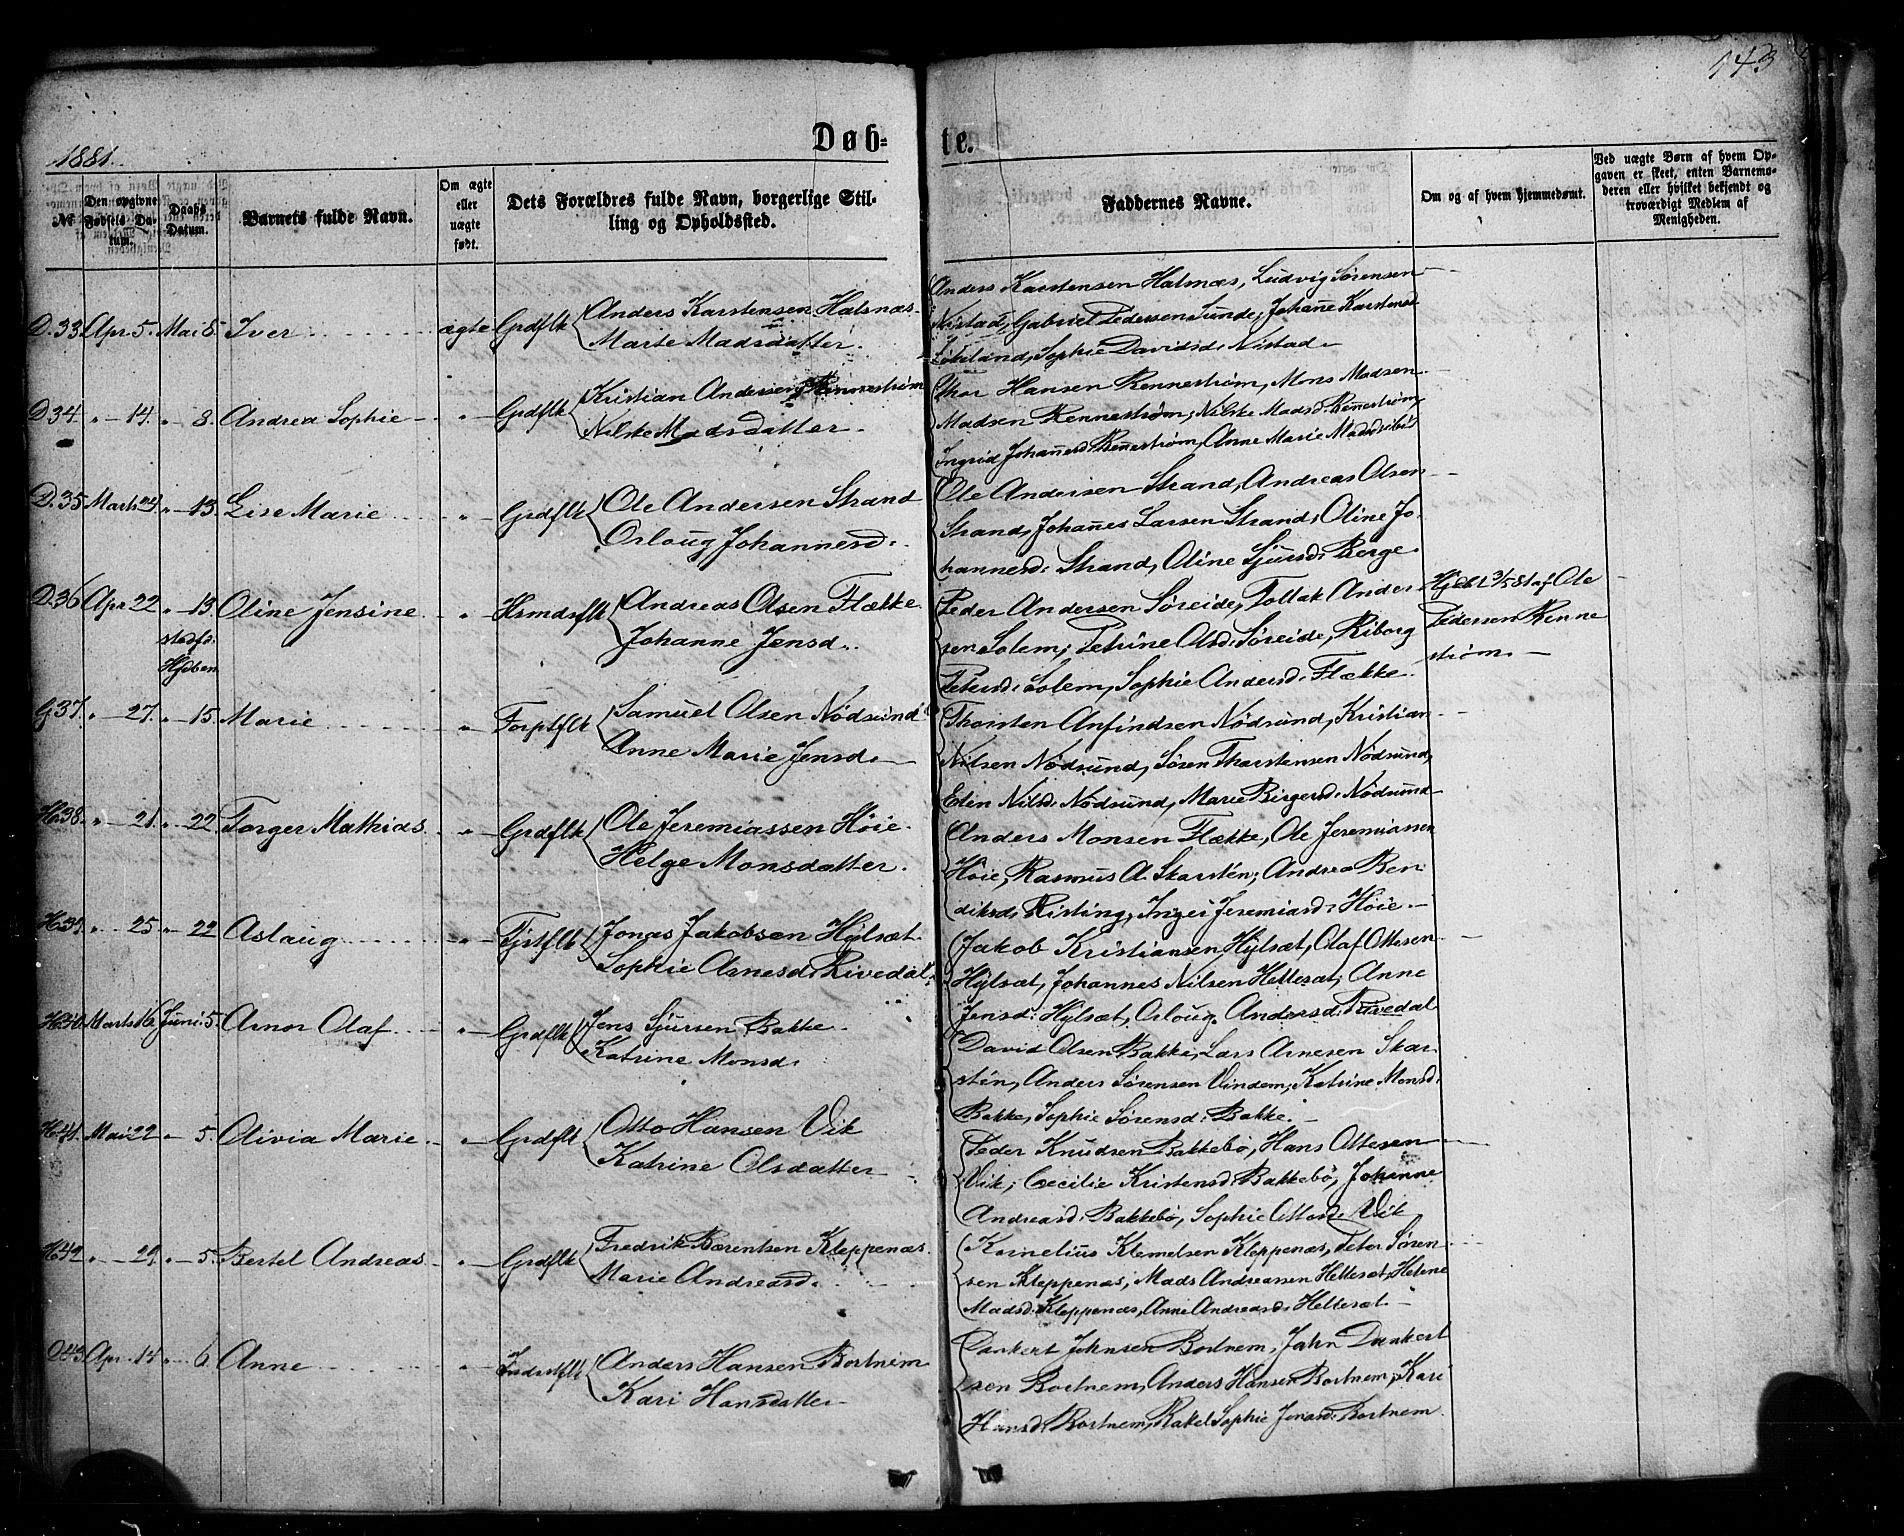 143
1881.
Døb-
te.
№
Den opgivne Fødsels-Datum.
Daabs Datum.
Barnets fulde Navn.
Om ægte eller uægte født.
Dets Forældres fulde Navn, borgerlige Stilling og Opholdssted.
Faddernes Navne.
Om og af hvem hjemmedøbt.
Ved uægte Børn af hvem Opgaven er skeet, enten Barnemoderen eller hvilket bekjendt og troværdigt Medlem af Menigheden.
D.33. Apr. 5. Mai 8. Iver ægte Grdflk Anders Karstensen Halsnæs
Marte Madsdatter.
Anders Karstensen Halsnæs, Ludvig Sørensen
Nistad, Gabriel Pedersen Sunde, Johanne Karstensd
Sophie Davidsd. Nistad
D.34 " 14. " 8. Andrea Sophie " Grdflk Kristian Andersen Rennestrøm
Nilske Madsdatter.
Thor Hansen Rennestrøm, Mons Madsen
Madsen Rennestrøm, Nilske Madsd. Rennestrøm,
Ingrid Johannesd. Rennestrøm, Anne Marie Madsd.
D.35 Marts 24. " 13. Lise Marie " Grdflk Ole Andersen Strand
Orloug Johannesd.
Ole Andersen Strand, Andreas Olsen
Strand, Johannes Larsen Strand, Oline Jo-
hannesd. Strand, Oline Sjursd. Berge
D.36 Apr 22 " 13. Oline Jensine " Hsmdsflk Andreas Olsen Flække
stadf.
Hjdben
Johanne Jensd.
Peder Andersen Søreide, Tollak Ander-
sen Solem, Petrine Olsd. Søreide, Riborg
Petersd. Solem, Sophie Andersd. Flække
Hjdbt 3/5 81 af Ole
Pedersen Renne
strøm.
G.37. " 27. " 15. Marie " Forptflk Samuel Olsen Nødsund
Anne Marie Jensd.
Thorsten Anfindsen Nødsund, Kristian
Nilsen Nødsund, Søren Thorstensen Nødsund,
Elin Nilsd. Nødsund, Marie Birgersd. Nødsund
H.38. " 21. " 22. Torger Mathias " Grdflk Ole Jeremiassen Høie
Helge Monsdatter.
Anders Monsen Flække, Ole Jeremiassen
Høie, Rasmus A. Skarstén, Andrea Ben-
diksd. Risting, Inger Jeremiasd. Høie
H.39. " 25. " 22 Aslaug " Jonas Jakobsen Hylsæt
Sophie Arnesd. Rivedal
Jakob Kristiansen Hylsæt, Olaf Ottesen
Hylsæt, Johannes Nilsen Hellesæt, Anne
Jensd. Hylsæt, Orloug Andersd. Rivedal
H.40. Marts 16 Juni 5. Arnor Olaf " Grdflk Jens Sjursen Bakke
Katrine Monsd.
David Olsen Bakke, Lars Arnesen Skar-
stén, Anders Sørensen Vindem, Katrine Monsd.
Bakke, Sophie Sørensd. Bakke.
H.41. Mai 22 " 5. Olivia Marie " Grdflk Otto Hansen Vik
Katrine Olsdatter
Peder Knudsen Bakkebø, Hans Ottesen
Vik, Cecilie Kristensd. Bakkebø, Johanne
Andreasd. Bakkebø, Sophie Ottosd. Vik
H.42 " 29. " 5. Bertel Andreas " Grdflk Fredrik Bærentsen Kleppenæs
Marie Andreasd.
Kornelius Klemetsen Kleppenæs, Peter Søren-
sen Kleppenæs, Mads Andreassen Hellesæt, Helene
Madsd. Kleppenæs, Anne Andreasd. Hellesæt
43. Apr. 14 " 6. Anne " Indrstflk Anders Hansen Bortnem
Kari Hansdatter
Dankert Johnsen Bortnem, John Dankert-
sen Bortnem, Anders Hansen Bortnem, Kari
Hansd. Bortnem, Rakel Sophie Jensd. Bortnem